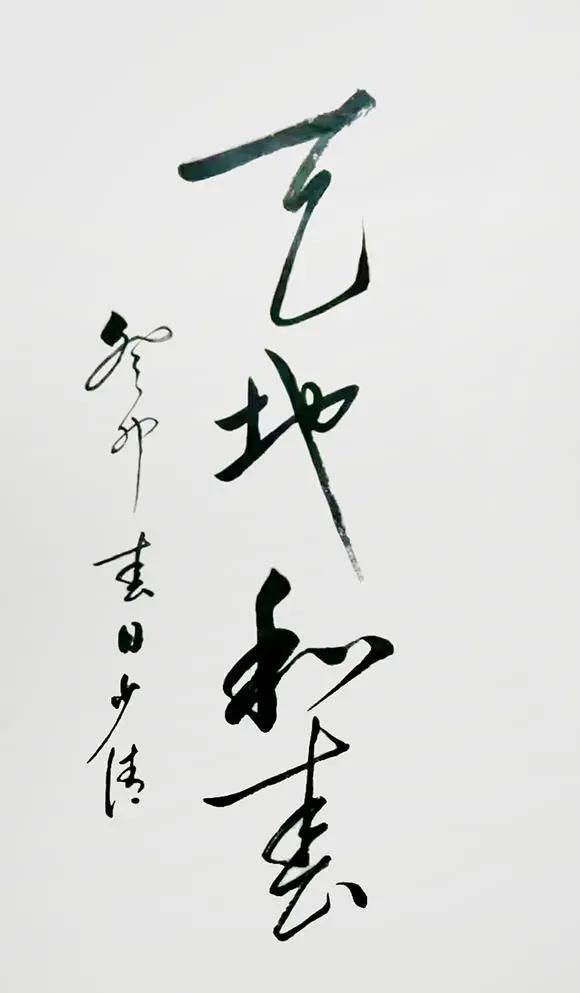 天地和春
癸卯春日少清